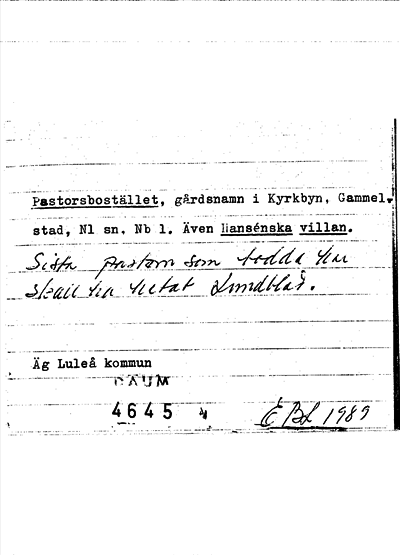 Pastorsbostället, gårdsnamn i Kyrkbyn, Gammel-
stad, Nl sn, Nb l. Även Hansénska villan.
Sista pastorn som bodda här
skall ha hetat Lundblad.
Äg Luleå kommun
DAUM
4645
EBL 1989